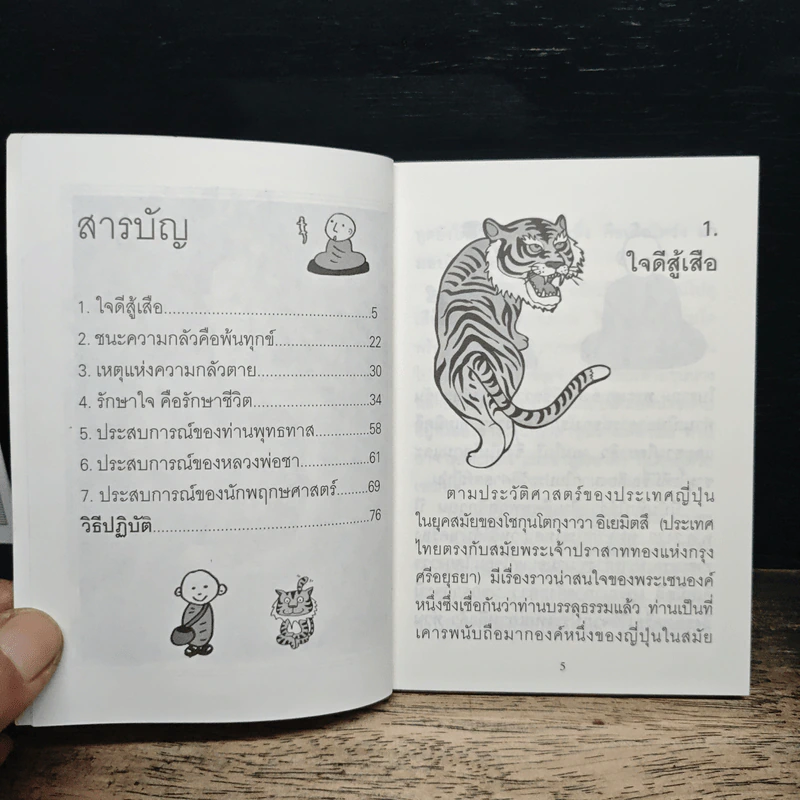 สารบัญ
1. ใจดีสู้เสือ....................................................5
2. ชนะความกลัวคือพ้นทุกข์.......................22
3. เหตุแห่งความกลัวตาย............................30
4. รักษาใจ คือรักษาชีวิต.............................34
5. ประสบการณ์ของท่านพุทธทาส.............58
6. ประสบการณ์ของหลวงพ่อชา................61
7. ประสบการณ์ของนักพฤกษศาสตร์........69
วิธีปฏิบัติ....................................................76
1.
ใจดีสู้เสือ
ตามประวัติศาสตร์ของประเทศญี่ปุ่น
ในยุคสมัยของโชกุนโตกุงาวา อิเยมิตสึ (ประเทศ
ไทยตรงกับสมัยพระเจ้าปราสาททองแห่งกรุง
ศรีอยุธยา) มีเรื่องราวน่าสนใจของพระเซนองค์
หนึ่งซึ่งเชื่อกันว่าท่านบรรลุธรรมแล้ว ท่านเป็นที่
เคารพนับถือมากองค์หนึ่งของญี่ปุ่นในสมัย
5